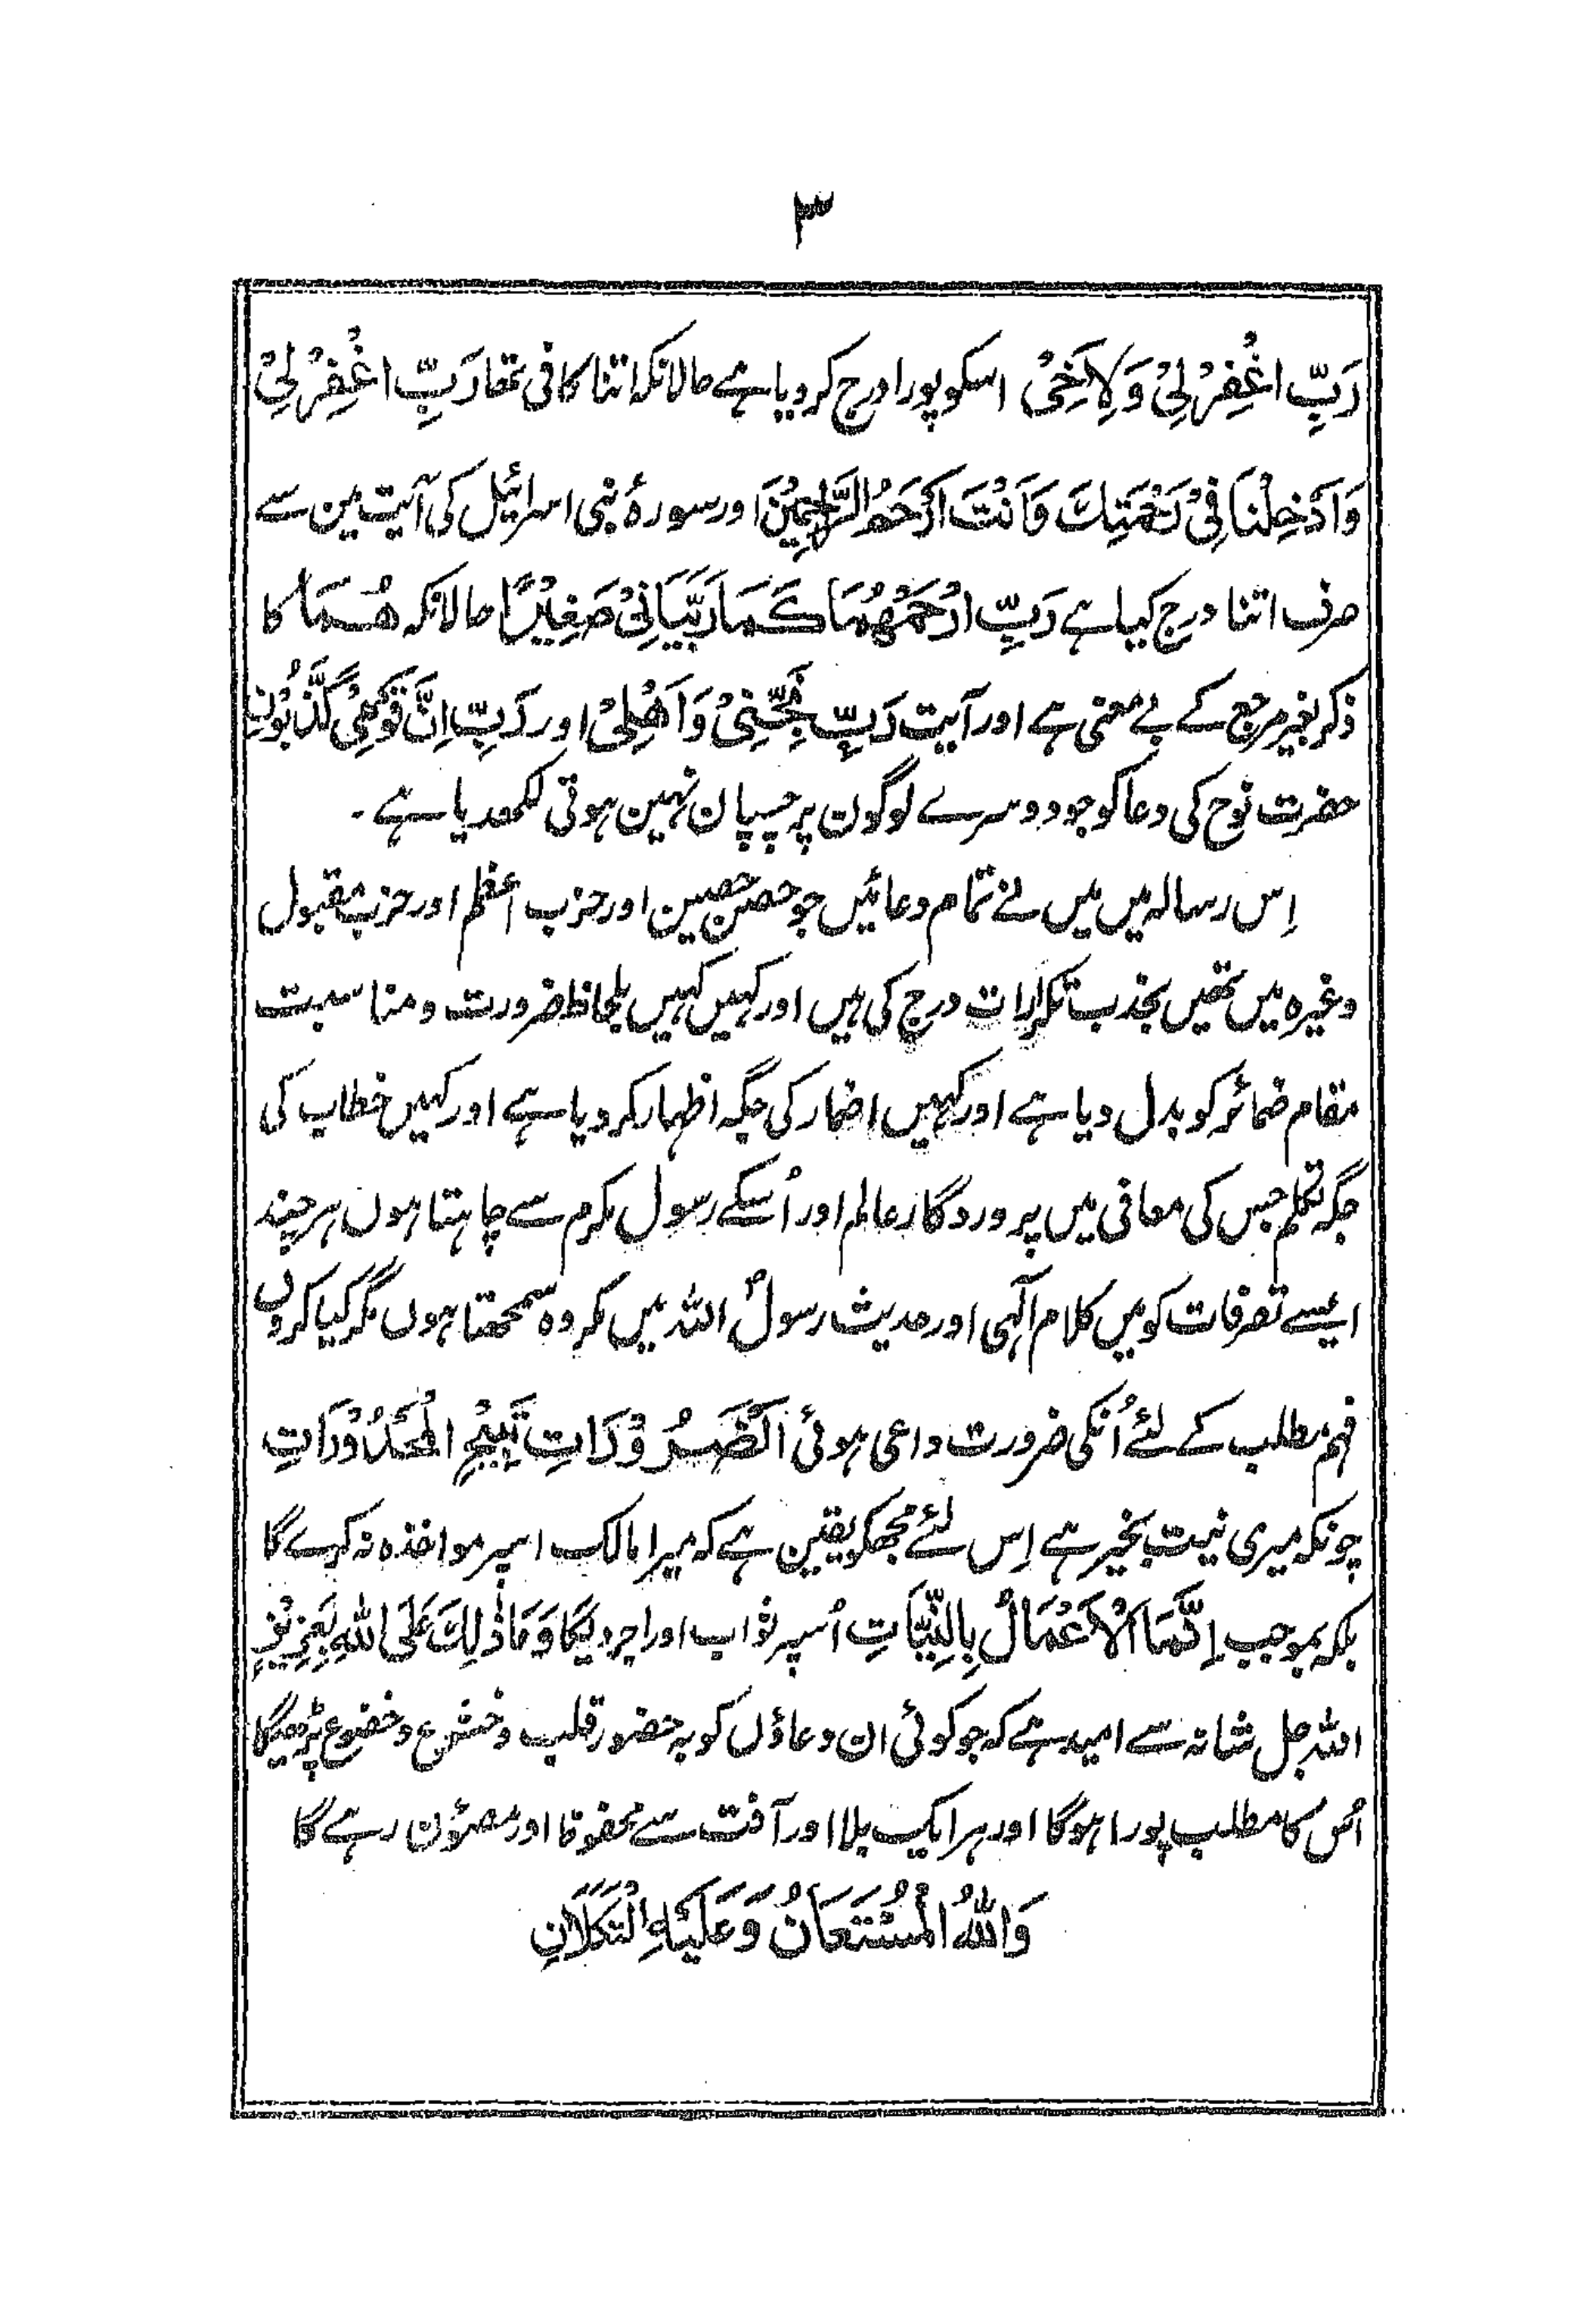 ۳
رَبِّ اغْفِرْ لِیْ وَلِاَخِیْ اسکو پورا درج کر دیا ہے حالانکہ اتنا کافی تھا رَبِّ اغْفِرْ لِیْ
وَاَدْخِلْنَا فِیْ رَحْمَتِكَ وَاَنْتَ اَرْحَمُ الرَّاحِمِیْنَ اور سورۂ بنی اسرائیل کی آیت مین سے
صرف اتنا درج کیا ہے رَبِّ ارْحَمْهُمَا كَمَا رَبَّیَانِیْ صَغِیْرًا حالانکہ هُمَا کا
ذکر بغیر مرجع کے بے معنی ہے اور آیت رَبِّ نَجِّنِیْ وَاَهْلِیْ اور رَبِّ اِنَّ قَوْمِیْ كَذَّبُوْنِ
حضرت نوح کی دعا کو جو دوسرے لوگون پر چسپان نہین ہوتی لکھدیا ہے ۔
اِس رسالہ میں میں نے تمام دعائیں جو حصن حصین اور حزب اعظم اور حزب مقبول
وغیرہ میں تھیں بحذب تکرارات درج کی ہیں اور کہیں کہیں بلحاظ ضرورت و مناسبت
مقام ضمائر کو بدل دیا ہے اور کہیں اضمار کی جگہ اظہار کر دیا ہے اور کہیں خطاب کی
جگہ تکلم جس کی معافی میں پروردگار عالم اور اُسکے رسول مکرم سے چاہتا ہوں ہر چند
ایسے تصرفات کو میں کلام الٰہی اور حدیث رسولؐ اللہ میں مکروہ سمجھتا ہوں مگر کیا کروں
فہم مطلب کے لئے اُنکی ضرورت داعی ہوئی اَلضَّرُوْرَاتِ تُبِیْحُ الْمَحْذُوْرَاتِ
چونکہ میری نیت بخیر ہے اِس لئے مجھکو یقین ہے کہ میرا مالک اسپر مواخذہ نہ کرے گا
بلکہ بموجب اِنَّمَا الْاَعْمَالُ بِالنِّیَّاتِ اُسپر ثواب اور اجر دیگا وَمَا ذٰلِكَ عَلَی اللهِ بِعَزِیْزٍ
اللہ جل شانہ سے امید ہے کہ جو کوئی ان دعاؤں کو بہ حضور قلب و خشوع و خضوع پڑھیگا
اُس کا مطلب پورا ہوگا اور ہر ایک بلا اور آفت سے محفوظ اور مصئون رہے گا
وَاللهُ الْمُسْتَعَانُ وَعَلَیْهِ التُّكْلَانِ